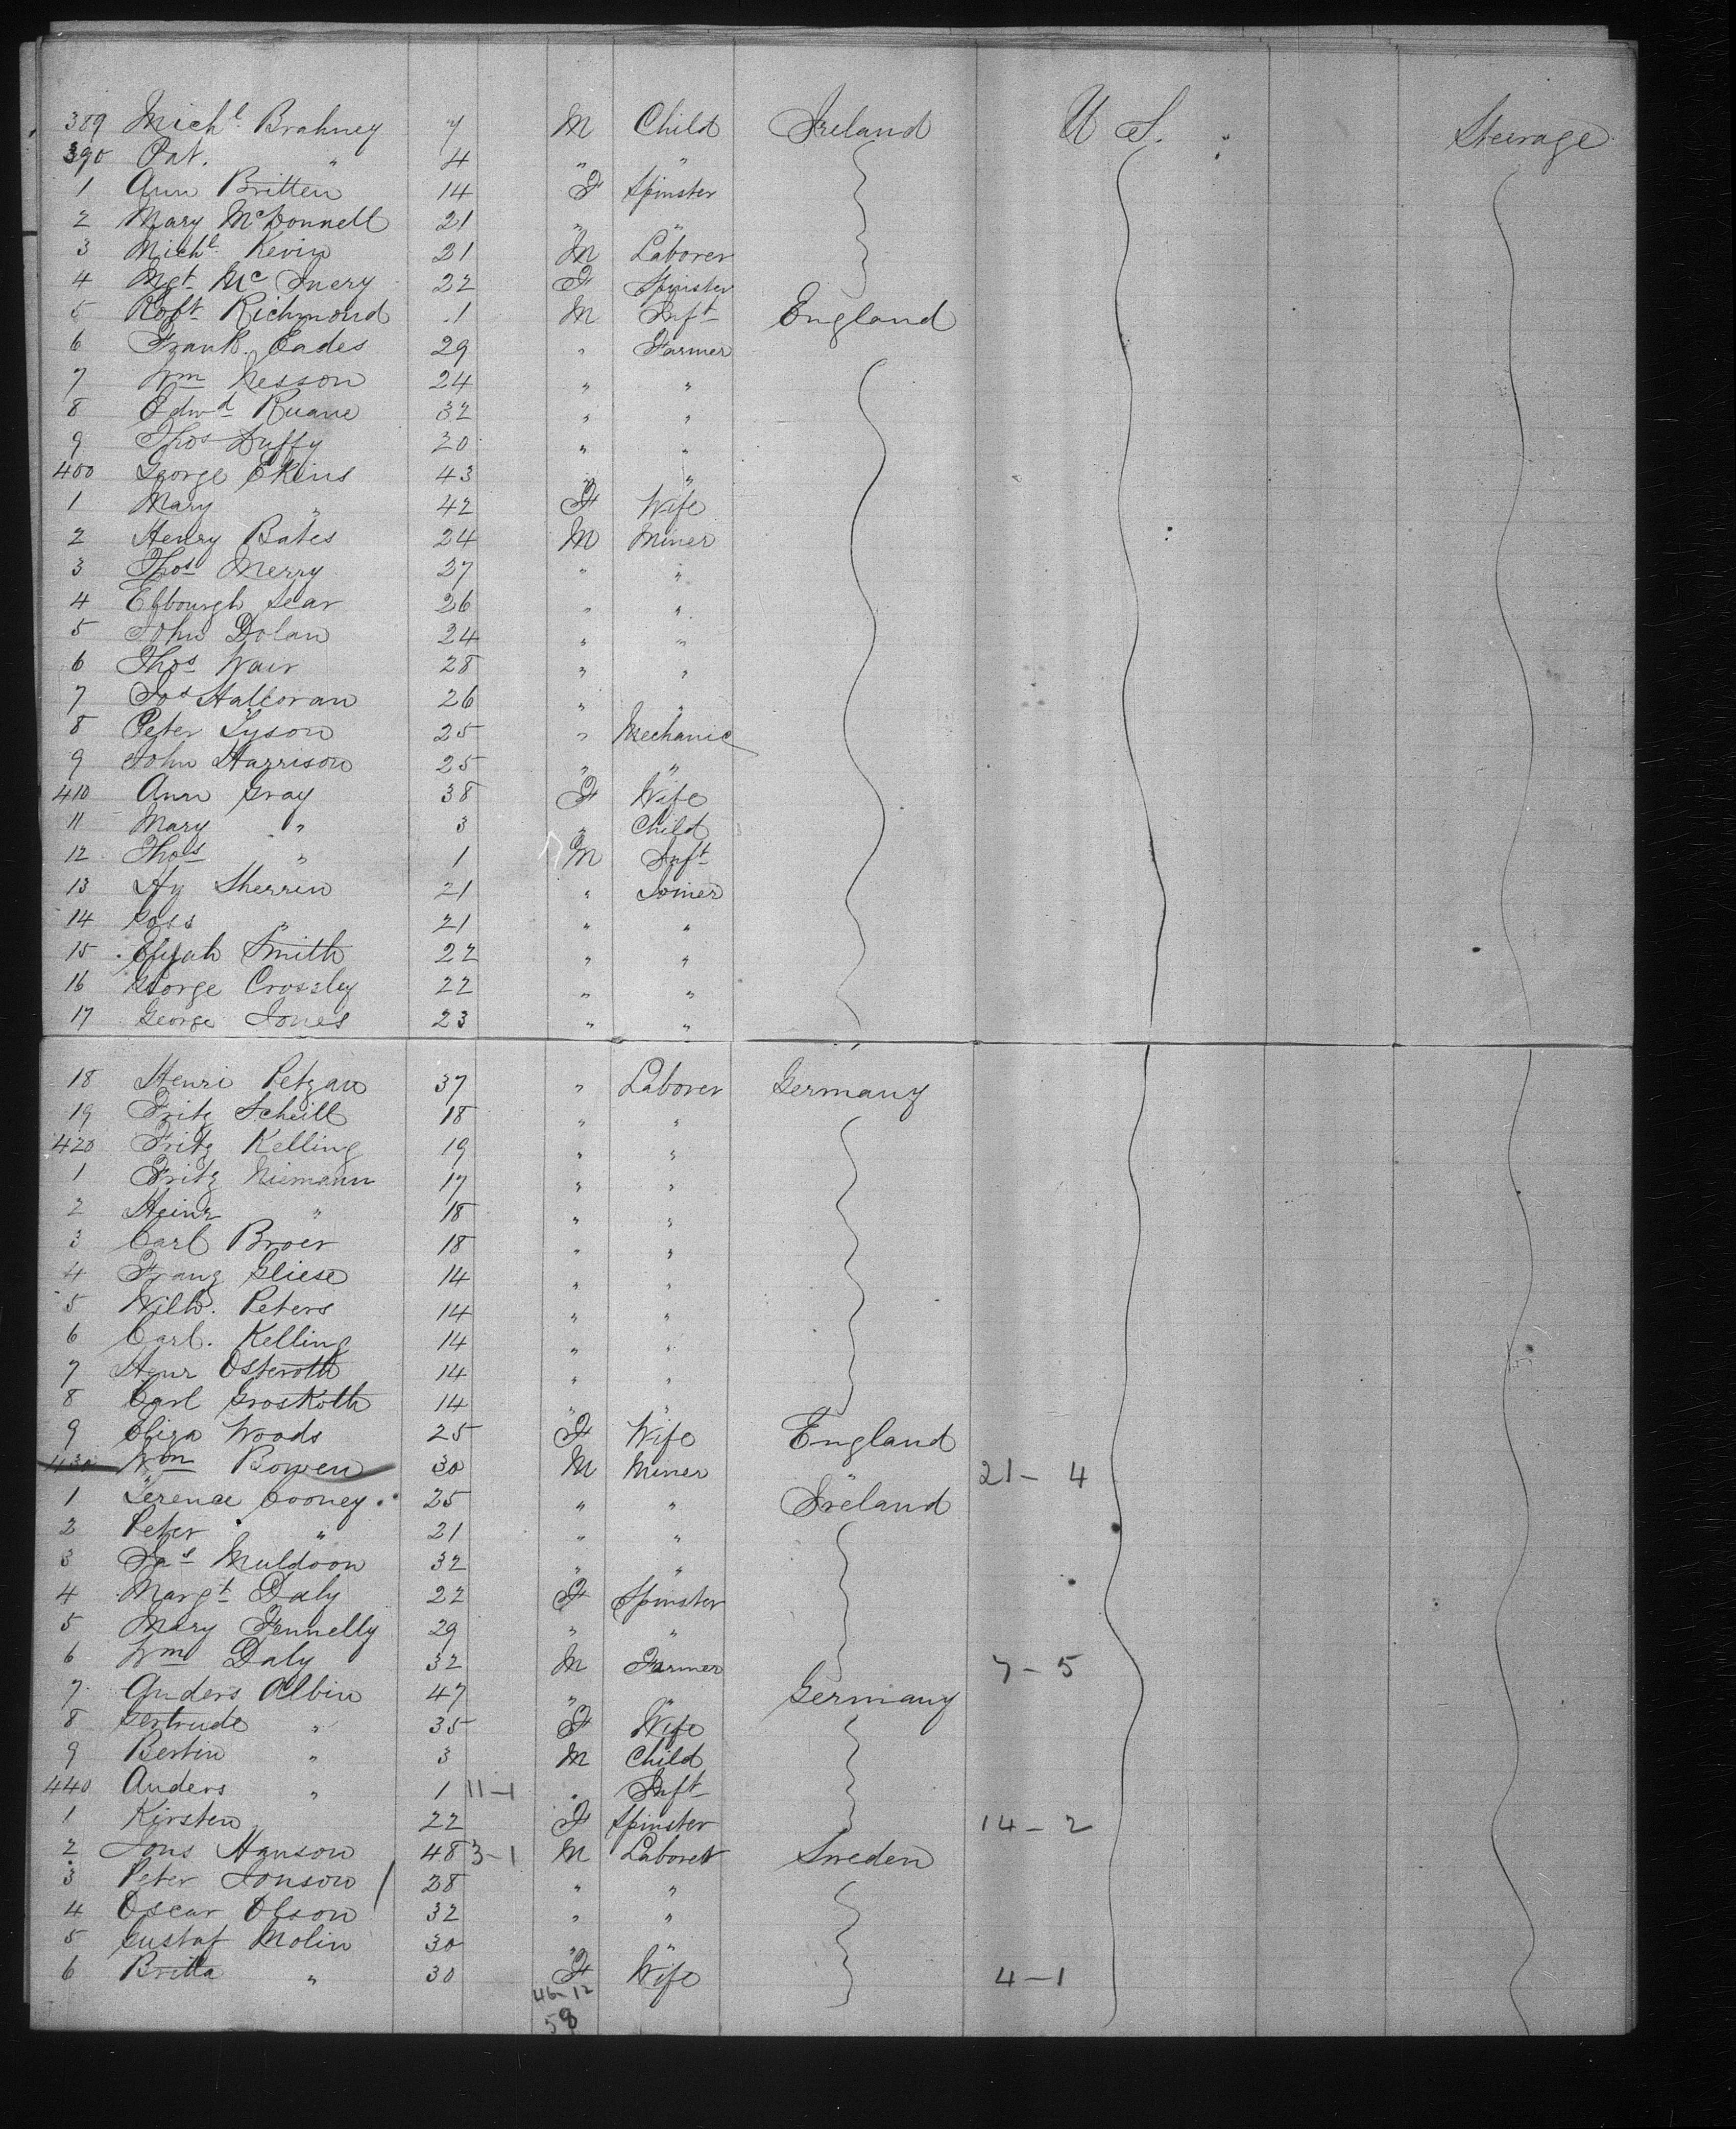 389 Mich^l Brahney 7 M Child Ireland U S. Steerage
390 Pat. " 4 " "
1 Ann Britten 14 F Spinster
2 Mary McDonnell 21 " "
3 Mich^l Kevin 21 M Laborer
4 Mgt Mc Inery 22 F Spinster
5 Robt Richmond 1 M Inft England
6 Frank Eades 29 " Farmer
7 Wm Nesson 24 " "
8 Edwd Ruane 32 " "
9 Thos Duffy 20 " "
400 George Ekins 43 " "
1 Mary " 42 F Wife
2 Henry Bates 24 M Miner
3 Thos Merry 27 " "
4 Sear 26 " "
5 John Dolan 24 " "
6 Thos Wair 28 " "
7 Jos Halloran 26 " "
8 Peter Tyson 25 " Mechanic
9 John Harrison 25 " "
410 Ann Gray 38 F Wife
11 Mary " 3 " Child
12 Thos " 1 M Inft
13 Hy Sherrin 21 " Joiner
14 " 21 " "
15 Elijah Smith 22 " "
16 George Crossley 22 " "
17 George Jones 23 " "
18 Henri Petzau 37 " Laborer Germany
19 Fritz Scheill 18 " "
420 Fritz Kelling 19 " "
1 Fritz Niemann 17 " "
2 Heinr " 18 " "
3 Carl Broer 18 " "
4 Franz Gliese 14 " "
5 Wilh. Peters 14 " "
6 Carl. Kelling 14 " "
7 Henr Osteroth 14 " "
8 Carl Groskoth 14 " "
9 Eliza Woods 25 F Wife England
430 Wm Bowen 30 M Miner " 21 - 4
1 Terence Cooney 25 " " Ireland
2 Peter " 21 " "
3 Jas Muldoon 32 " "
4 Margt Daly 22 F Spinster
5 Mary Fennelly 29 " "
6 Wm Daly 32 M Farmer 7 - 5
7 Anders Albin 47 " " Germany
8 Gertrude " 35 F Wife
9 Bertin " 3 M Child
440 Anders " 1 11-1 " Inft
1 Kirsten 22 F Spinster 14 - 2
2 Jons Hanson 48 3-1 M Laborer Sweden
3 Peter Jonson 28 " "
4 Oscar Olson 32 " "
5 Gustaf Molin 30 " "
6 Britta " 30 F Wife 4 - 1
46-12
58